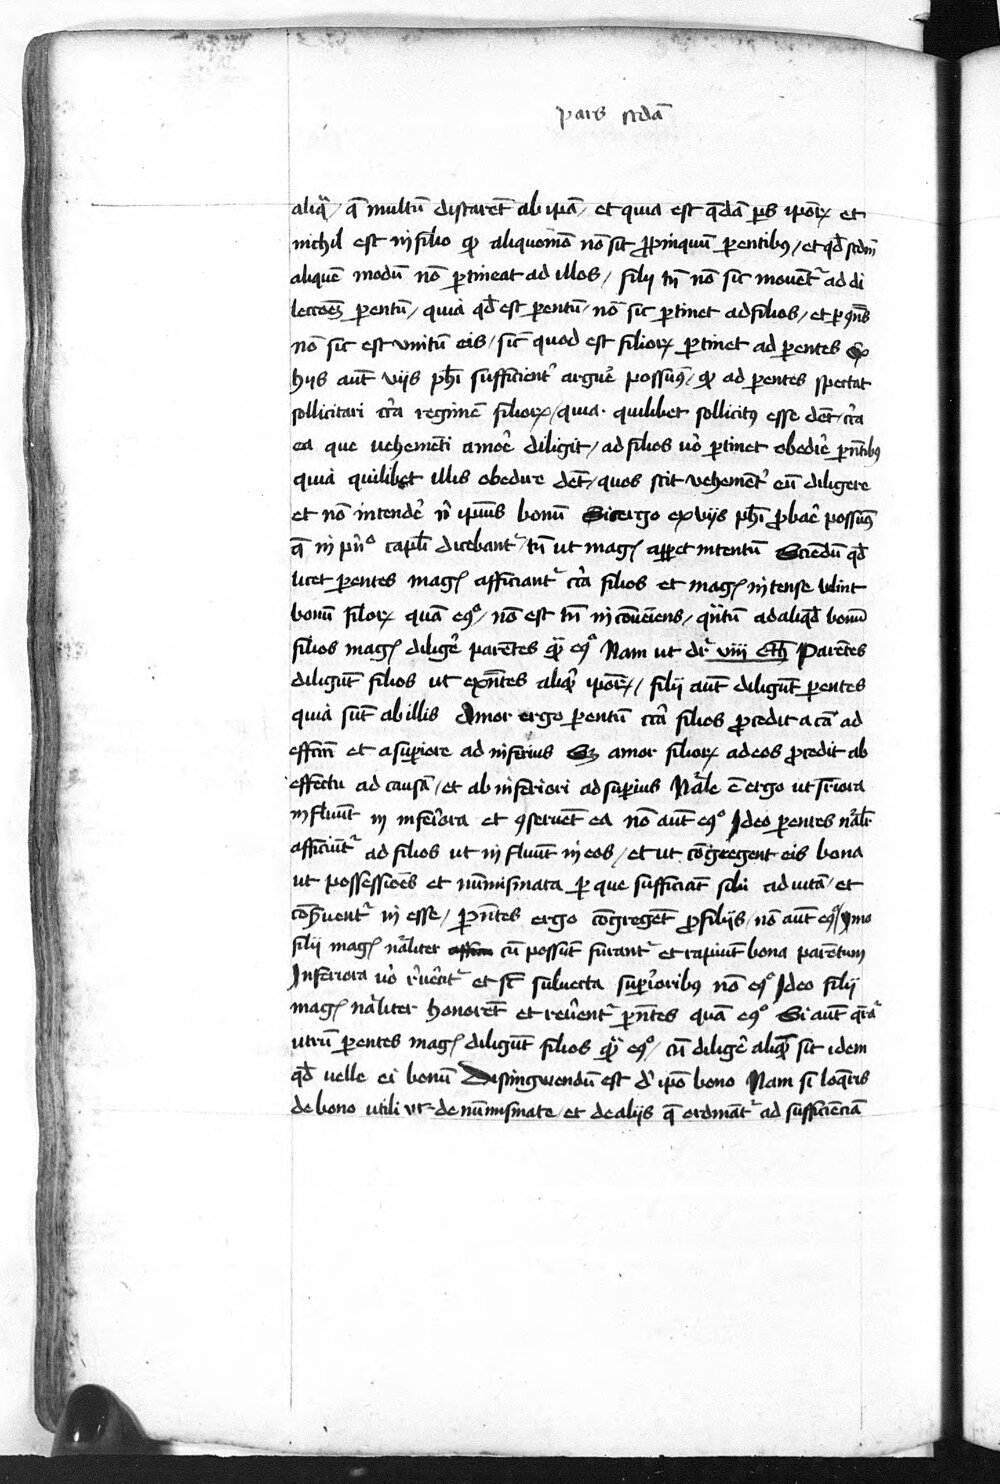 pars scďa
aliqͣ / q̄ multū distarēt ab ipā / et quia est q̄dā ps ipoꝝ et
nichil est in filio qͦ aliquomō nō sit ꝓpinquū ꝑentibꝰ / et qď scdm̄
aliquē modū nō ꝑtineat ad illos / filij tn̄ nō sic mouēt᷑ ad di
lecc̄oēs ꝑentū / quia qď est ꝑentū / nō sic ꝑtinet ad filios / et ꝑ ꝯn̄s
nō sic est vnitū eis / sic̄ quod est filioꝝ ꝑtinet ad ꝑentes Ex
hijs aūt vijs ph̄i sufficient᷑ argue᷑ possumꝰ / qͦ ad ꝑentes spectat
sollicitari cͥca regimē filioꝝ / quia quilibet sollicitꝰ esse dꝫ / cͥca
ea que uehementi amoē diligit / ad filios uͦ ꝑtinet obediē ꝑn̄tibꝰ
quia quilibet illis obedire dꝫ / quos scit vehement᷑ eū diligere
et nō intendē nͥ ipius bonū Sic ergo ex vijs ph̄i ꝓbaē possumꝰ
q̄ in pͥnͦ capl̄i dicebant᷑ / tn̄ ut magꝭ appet intentū Sciendū qď
licet ꝑentes magꝭ afficiant᷑ cͥca filios et magꝭ intense velint
bonū filioꝝ quā eqͦ / nō est tn̄ incōueniens / qͣntū ad aliqď bonū
filios magꝭ diligē parētes qͣ eqͦ Nam ut dr̄ viii Eth Parētes
diligūt filios ut exn̄tes aliqͥ ipoꝝ / filij aūt diligūt ꝑentes
quia sūt ab illis Amor ergo ꝑentū cͥca filios ꝓcedit a cā ad
effc̄m et a supiore ad inferius Sꝫ amor filioꝝ ad eos ꝓcedit ab
effectu ad causā / et ab inferiori ad supius Nͣle ē ergo ut supiora
influūt in inferiora et ꝯseruēt ea nō aūt eqͦ Ideo ꝑentes nͣlr̄
afficiūt᷑ ad filios ut influūt in eos / et ut cōgregent eis bona
ut possessiōēs et nūmismata ꝑ que sufficiāt sibi ad vitā / et
cōs̄uent᷑ in esse / ꝑn̄tes ergo cōgregēt ꝓ filijs / nō aūt eqͦ / ymo
filij magꝭ nͣliter cū possūt furant᷑ et rapiūt bona parētum
Inferiora uͦ reūēt᷑ et sūt subiecta supioribꝰ nō eqͦ Ideo filij
magꝭ nͣliter honorēt et reuēent᷑ ꝑn̄tes quā eqͦ Si aūt qͣrat᷑
utrū ꝑentes magꝭ diligūt filios qͣ eqͦ / cū diligē aliqͣ sit idem
qď velle ei bonū Distingwendū est dͥ ipo bono Nam si loqͣris
de bono utili ut de nūmismate / et de alijs q̄ ordinant᷑ ad sufficienciā